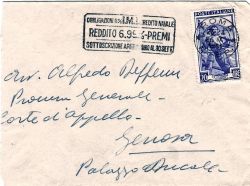 OBBLIGAZIONI I.M.I. CREDITO NAVALE
REDDITO 6.95% - PREMI
SOTTOSCRIZIONE
POSTE ITALIANE
ROMA
Avv. Alfredo
Procura Generale
Corte d'Appello
Genova
Palazzo Ducale